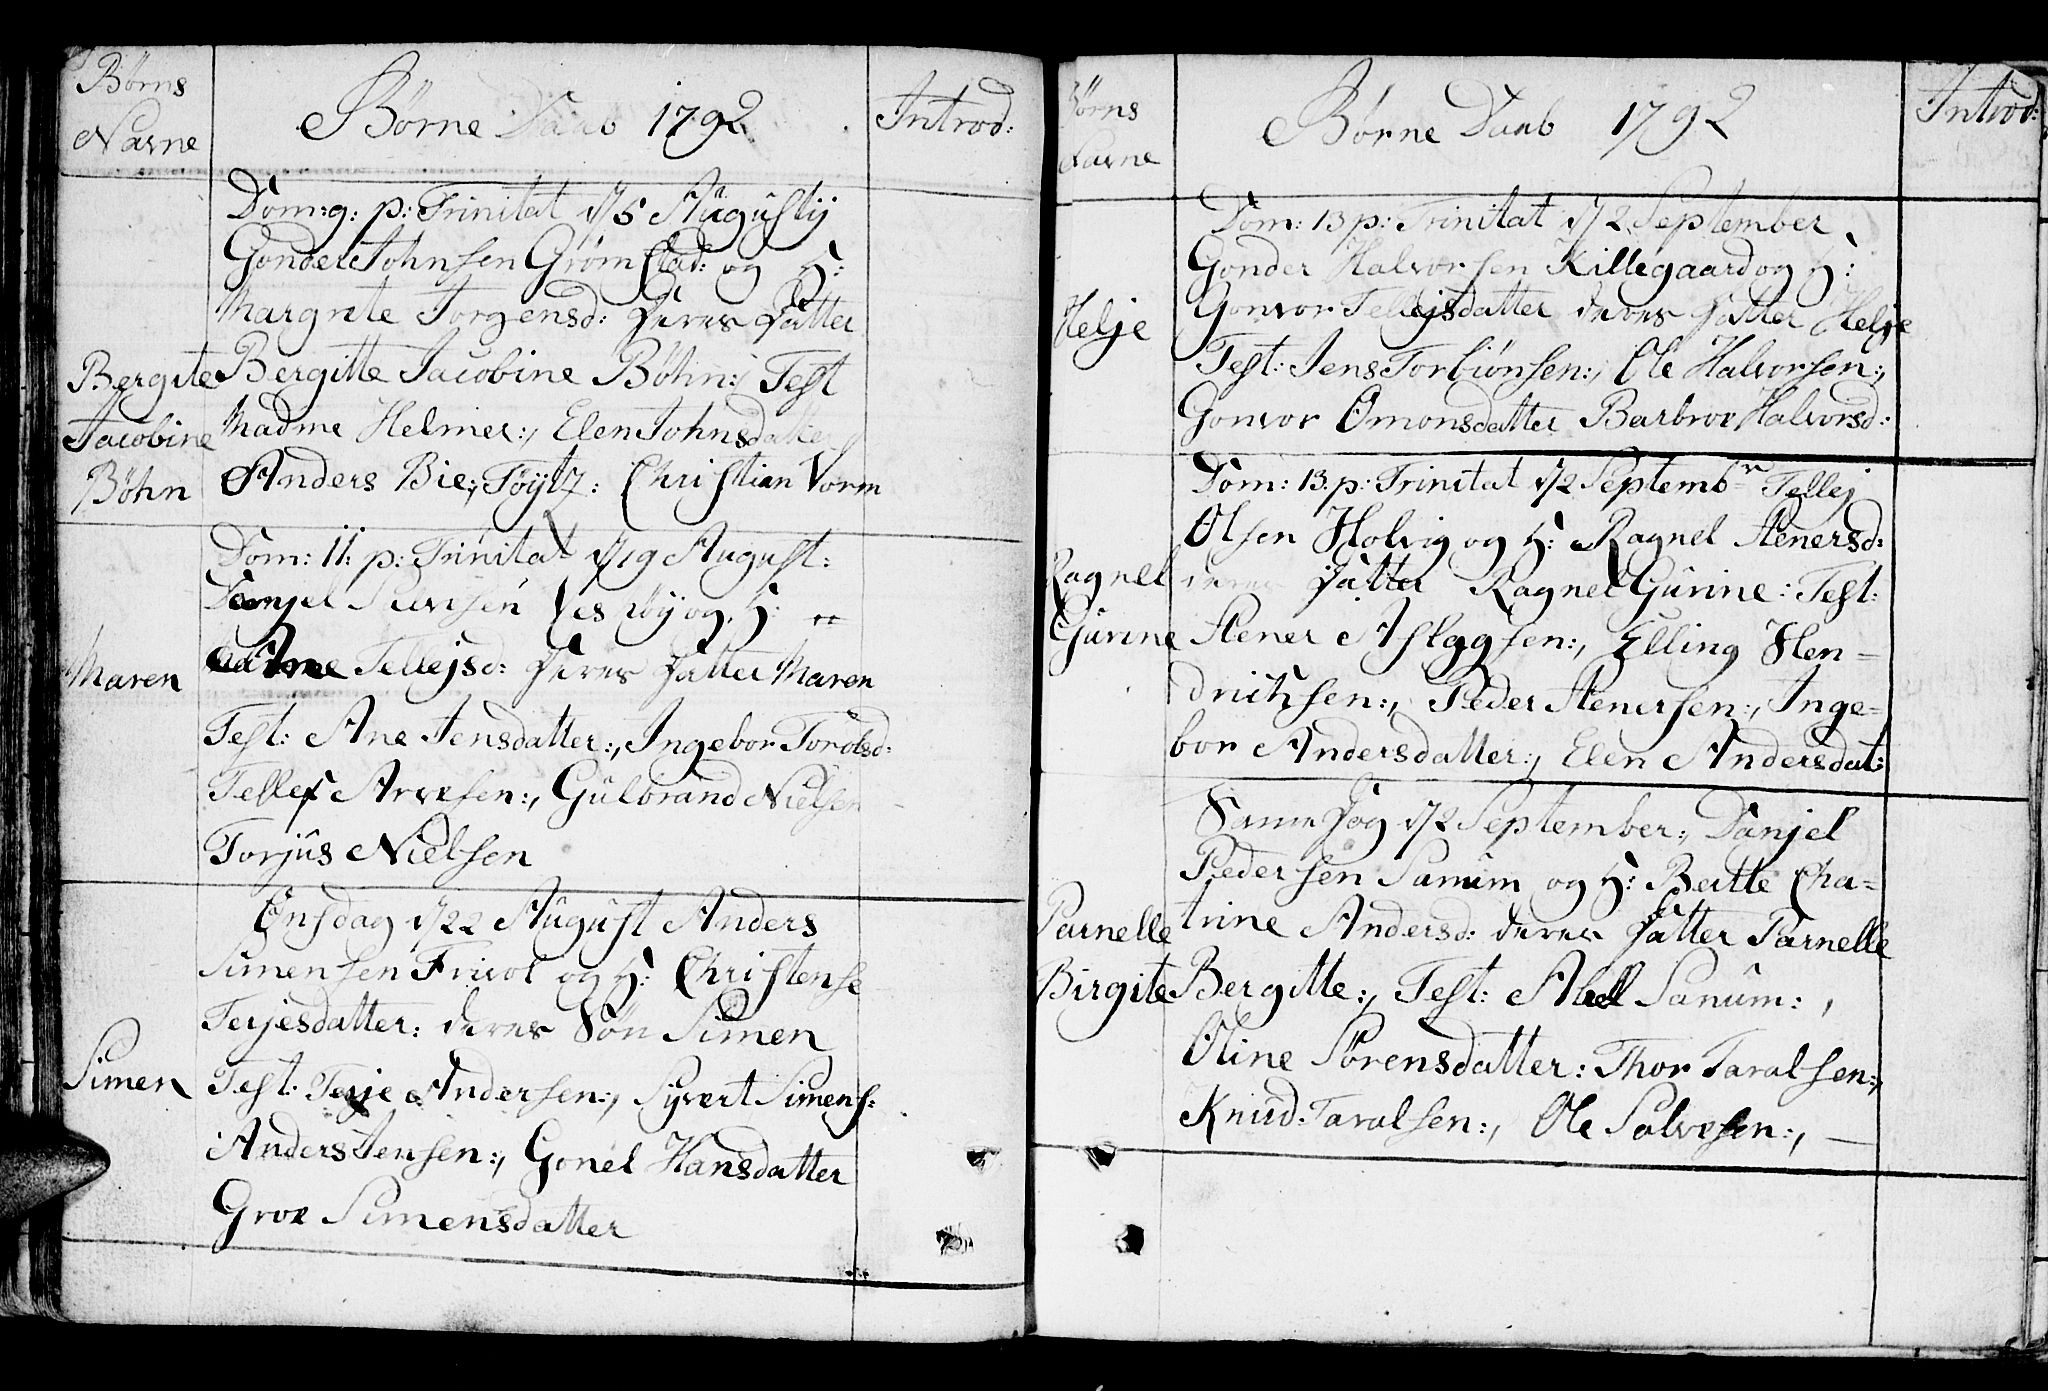 Børns
Navne
Børne Daab 1792
Introd:
Dom: 9: p: Trinitat d/5 Augustij
Gonder Johnsen Grømstad: og H:
Margrete Jorgensd: Deres Datter
Bergitte Jacobine Bøhn:, Test
Madme Helmer:, Elen Johnsdatter
Anders Bie:, Tøÿtz: Christian Vorm
Bergite
Jacobine
Bøhn
Dom: 11: p: Trinitat d/19 August:
Danjel og H:
Ane Tellejsd: Deres Datter Maren
Test: Ane Jensdatter:, Ingebor Torolsd:
Tellef Arvesen:, Gulbrand Nielsen
Torjus Nielsen
Maren
Onsdag d/22 August Anders
Simensen Frivol og H: Christense
Terjesdatter: deres Søn Simen
Test: Terje Andersen:, Syvert Simens:
Anders Jensen:, Gonel Hansdatter
Groe Simensdatter
Simen
Børns
Navne
Børne Daab 1792
Introd:
Dom: 13 p: Trinitat d/2 September
Gonder Halvorsen Killegaard og H:
Gonvor Tellejsdatter deres Datter Helje
Test: Jens Torbiønsen:, Ole Halvorsen:,
Gonvor Omonsdatter Barbroe Halvorsd:
Helje
Dom: 13. p: Trinitat d/2 Septembr Tellej
Olsen Holvig og H: Ragnel Stenersd:
deres Datter Ragnel Gurine: Test:
Stener Aslagsen:, Elling Hen-
drichsen:, Peder Stenersen:, Inge-
bor Andersdatter:, Elen Andersdat:
Ragnel
Gurine
Same Dag d/2 September:, Danjel
Pedersen Sanum og H: Beitte Cha-
trine Andersd: deres Datter Parnelle
Bergitte:, Test: Abell Sanum:,
Oline Sørensdatter: Thor Taralsen:,
Knud: Taralsen:, Ole Salvesen:,
Parnelle
Birgite